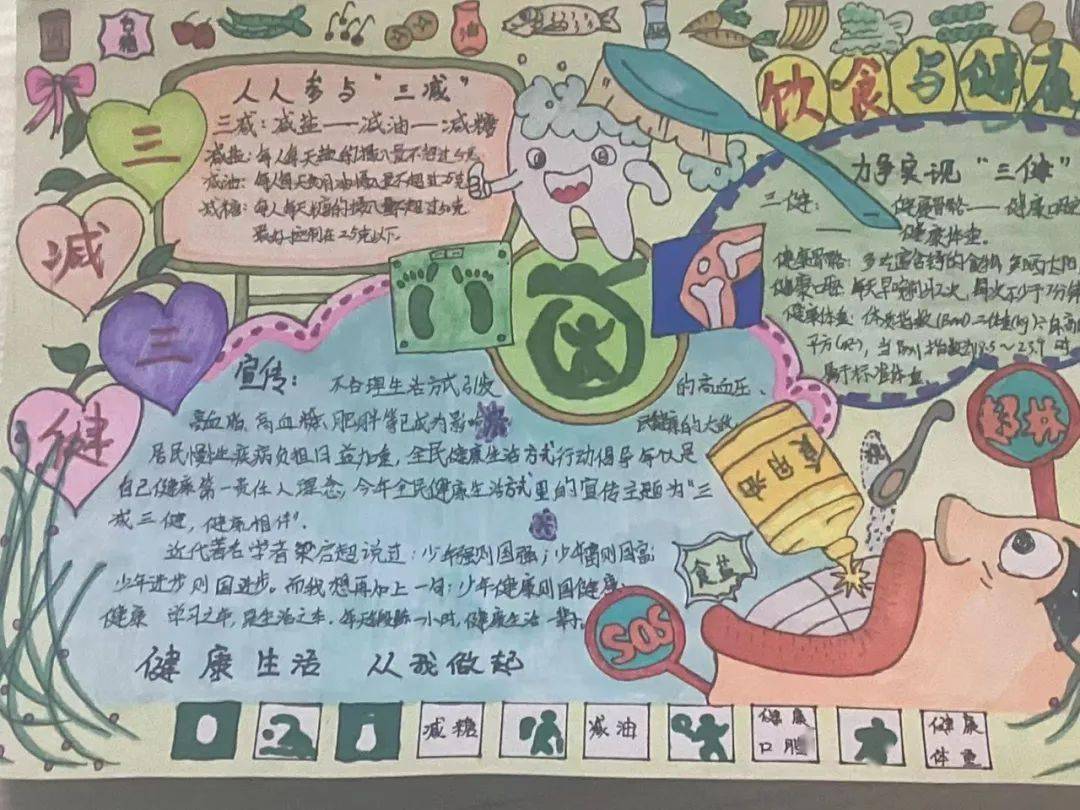 白糖
饮食与健康
三
减
三
健
人人参与“三减”
三减：减盐——减油——减糖
减盐：每人每天盐的摄入量不超过5克
减油：每人每天食用油摄入量不超过25克
减糖：每人每天糖的摄入量不超过50克
最好控制在25克以下。
力争实现“三健”
三健：健康骨骼——健康口腔
——健康体重。
健康骨骼：多吃富含钙的食物，多晒太阳
健康口腔 每天早晚刷牙2次，每次不少于
健康体重 体质指数
平方(m²)，当BMI指数到18.5～23.9时
属于标准体重
宣传：不合理生活方式引发的高血压、
高血脂、高血糖、肥胖等已成为影响
居民慢性疾病负担日益加重，全民健康生活方式行动倡导每个人是
自己健康第一责任人理念，今年全民健康生活方式的宣传主题为“三
减三健，健康相伴”。
近代著名学者梁启超说过：少年强则国强；少年富则国富；
少年进步则国进步。而我想再加上一句：少年健康则国健康；
健康 学习之本，是生活之本，每天锻炼一小时，健康生活一辈子。
健康生活 从我做起
食用油
盐
超标
食盐
SOS
减糖
减油
健康
口腔
健康
体重